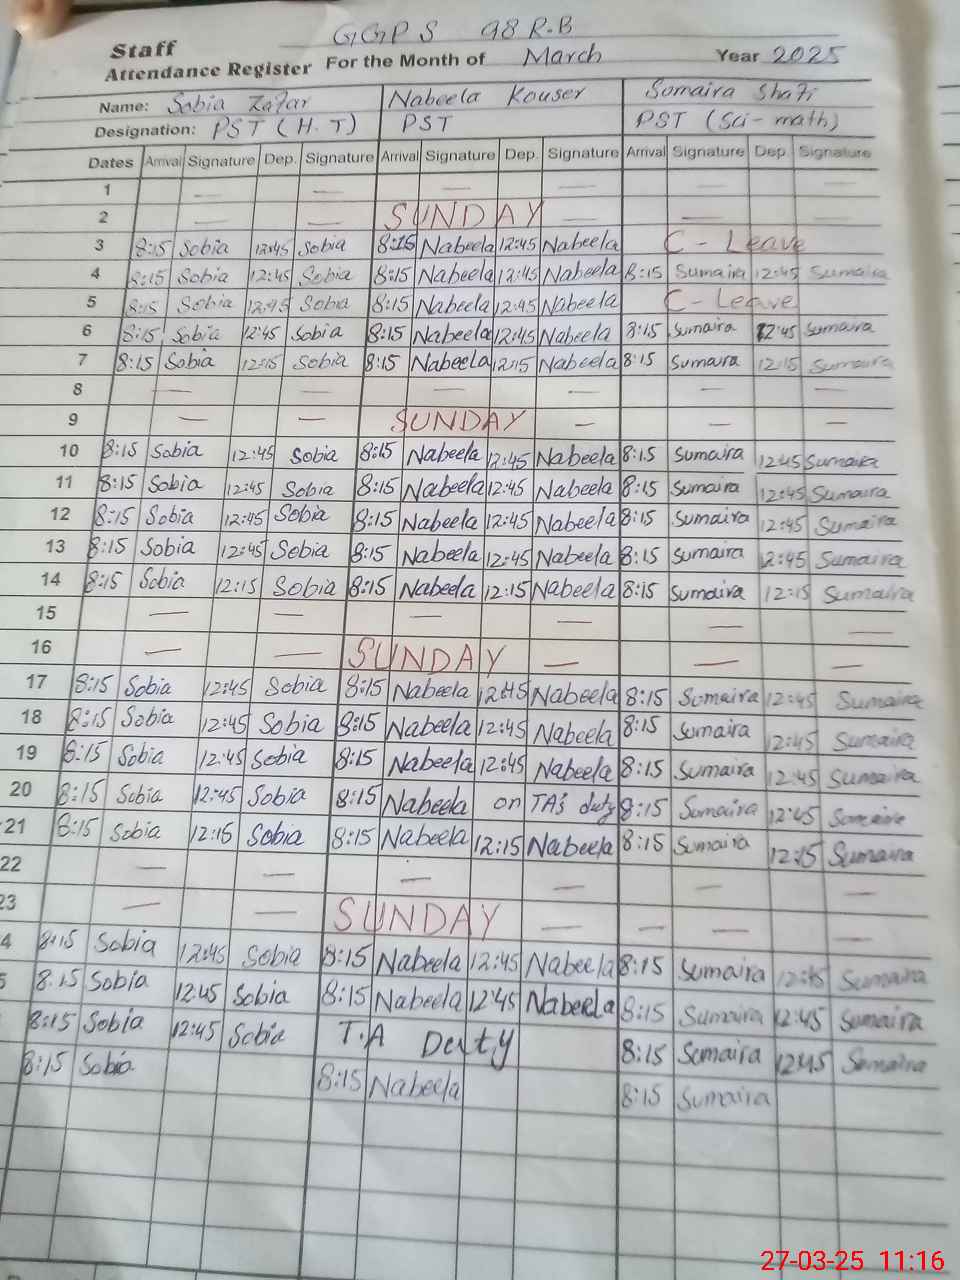 GGPS 98 R.B
Staff
Attendance Register For the Month of March Year 2025
Name: Sobia Zafar Nabeela Kouser Somaira Shafi
Designation: PST (H.T) PST PST (Sci-math)
Dates Arrival Signature Dep. Signature Arrival Signature Dep. Signature Arrival Signature Dep. Signature
1 — — — — — —
2 — — SUNDAY — — —
3 8:15 Sobia 12:45 Sobia 8:15 Nabeela 12:45 Nabeela C - Leave
4 8:15 Sobia 12:45 Sobia 8:15 Nabeela 12:45 Nabeela 8:15 Sumaira 12:45 Sumaira
5 8:15 Sobia 12:45 Sobia 8:15 Nabeela 12:45 Nabeela C - Leave
6 8:15 Sobia 12:45 Sobia 8:15 Nabeela 12:45 Nabeela 8:15 Sumaira 12:45 Sumaira
7 8:15 Sobia 12:15 Sobia 8:15 Nabeela 12:15 Nabeela 8:15 Sumaira 12:15 Sumaira
8 — — — — — —
9 — — SUNDAY — — —
10 8:15 Sobia 12:45 Sobia 8:15 Nabeela 12:45 Nabeela 8:15 Sumaira 12:45 Sumaira
11 8:15 Sobia 12:45 Sobia 8:15 Nabeela 12:45 Nabeela 8:15 Sumaira 12:45 Sumaira
12 8:15 Sobia 12:45 Sobia 8:15 Nabeela 12:45 Nabeela 8:15 Sumaira 12:45 Sumaira
13 8:15 Sobia 12:45 Sobia 8:15 Nabeela 12:45 Nabeela 8:15 Sumaira 12:45 Sumaira
14 8:15 Sobia 12:15 Sobia 8:15 Nabeela 12:15 Nabeela 8:15 Sumaira 12:15 Sumaira
15 — — — — — —
16 — — SUNDAY — — —
17 8:15 Sobia 12:45 Sobia 8:15 Nabeela 12:45 Nabeela 8:15 Somaira 12:45 Sumaira
18 8:15 Sobia 12:45 Sobia 8:15 Nabeela 12:45 Nabeela 8:15 Sumaira 12:45 Sumaira
19 8:15 Sobia 12:45 Sobia 8:15 Nabeela 12:45 Nabeela 8:15 Sumaira 12:45 Sumaira
20 8:15 Sobia 12:45 Sobia 8:15 Nabeela on TA's duty 8:15 Sumaira 12:45 Somaira
21 8:15 Sobia 12:15 Sobia 8:15 Nabeela 12:15 Nabeela 8:15 Sumaira 12:15 Sumaira
22 — — — — — —
23 — — SUNDAY — — — —
4 8:15 Sobia 12:45 Sobia 8:15 Nabeela 12:45 Nabeela 8:15 Sumaira 12:45 Sumaira
5 8:15 Sobia 12:45 Sobia 8:15 Nabeela 12:45 Nabeela 8:15 Sumaira 12:45 Sumaira
8:15 Sobia 12:45 Sobia T.A Duty 8:15 Sumaira 12:45 Sumaira
8:15 Sobia 8:15 Nabeela 8:15 Sumaira
27-03-25 11:16